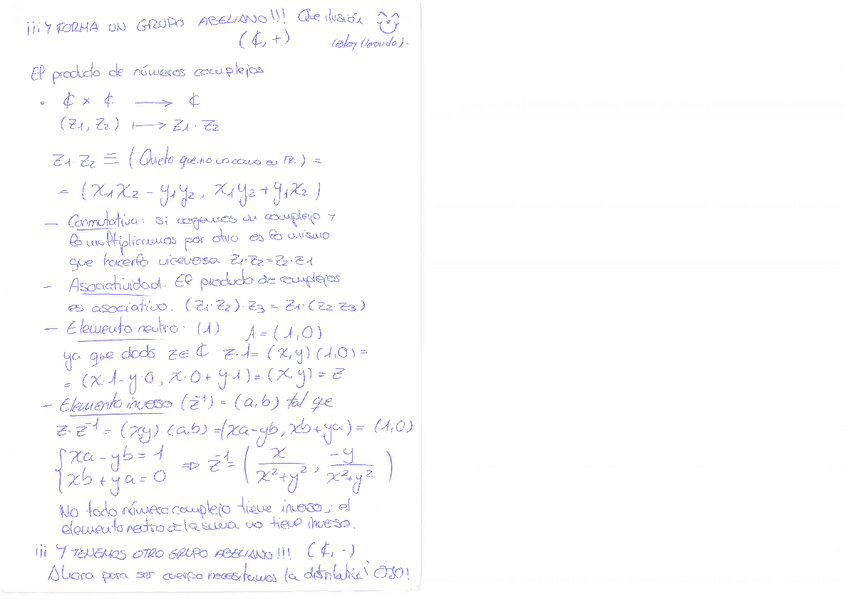 ¡¡¡Y FORMA UN GRUPO ABELIANO!!! Que ilusión
(ℂ, +) (estoy llorando).
El producto de números complejos
• ℂ × ℂ ⟶ ℂ
(z₁, z₂) ⟼ z₁·z₂
z₁·z₂ ≡ (Quicto que no un en ℝ.) =
= (x₁x₂ - y₁y₂, x₁y₂ + y₁x₂)
- Conmutativa: si cogemos un complejo y
lo multiplicamos por otro es lo mismo
que hacerlo viceversa z₁·z₂=z₂·z₁
- Asociatividad. El producto de complejos
es asociativo. (z₁·z₂)·z₃ = z₁·(z₂·z₃)
- Elemento neutro: (1) 1 = (1,0)
ya que dado z∈ℂ z·1 = (x,y)(1,0) =
= (x·1-y·0, x·0+y·1) = (x,y) = z
- Elemento inverso (z⁻¹) = (a,b) tal que
z·z⁻¹ = (x,y)·(a,b) = (xa-yb, xb+ya) = (1,0)
{xa-yb=1
{xb+ya=0 ⇒ z⁻¹ = (x/(x²+y²), -y/(x²+y²))
No todo número complejo tiene inverso; el
elemento neutro de la suma no tiene inverso.
¡¡¡ Y TENEMOS OTRO GRUPO ABELIANO!!! (ℂ, ·)
Ahora para ser cuerpo necesitamos la distributiva ¡OJO!